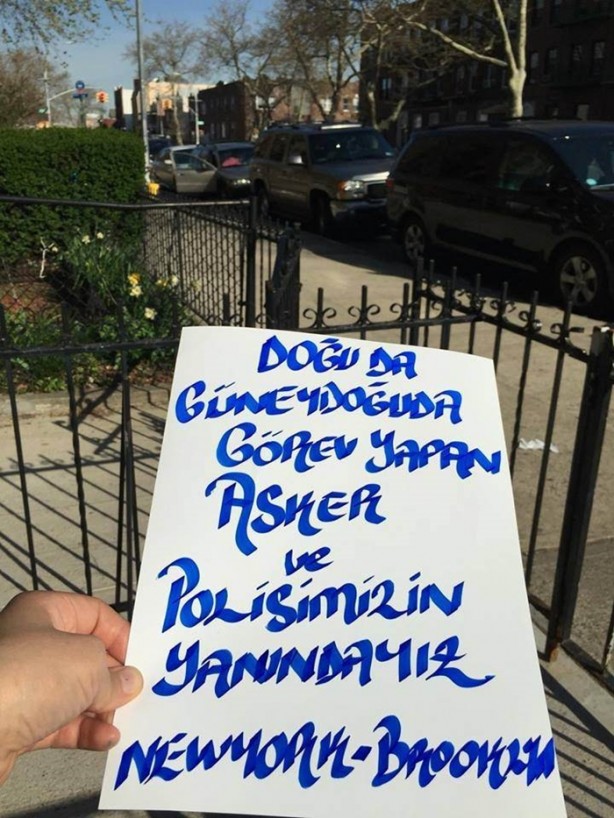 DOĞU DA
GÜNEYDOĞUDA
GÖREV YAPAN
ASKER
ve
POLİSİMİZİN
YANINDAYIZ
NEWYORK-BROOKLYN